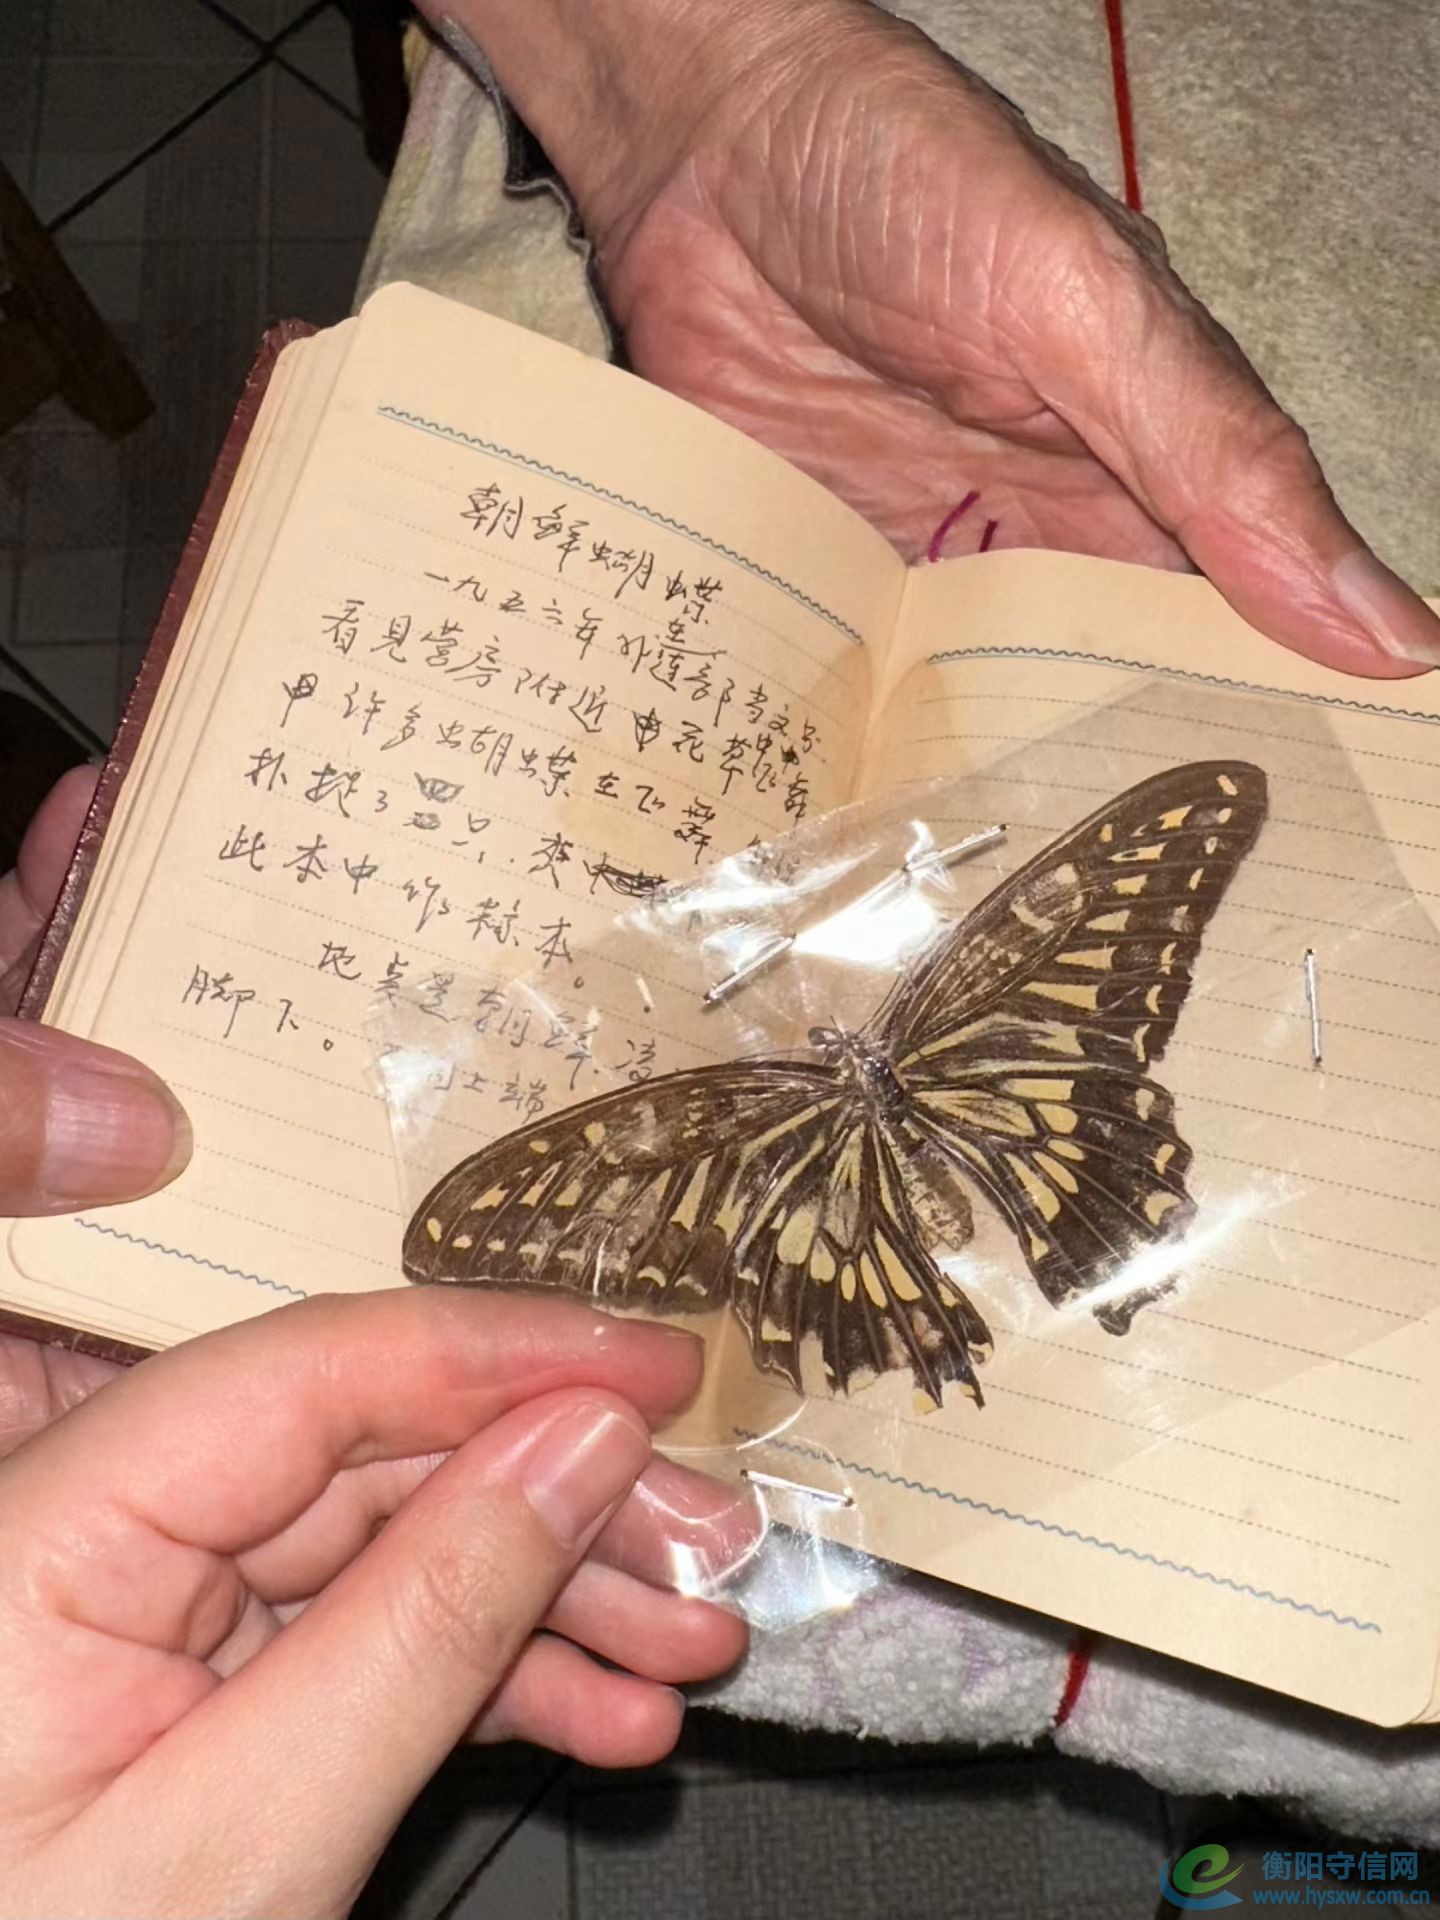 朝鲜蝴蝶
一九五六年 在连部当文书
看见营房附近 花草中
许多蝴蝶在飞舞
扑捉了 只
此本中作标本。
地点是朝鲜
脚下。
上端
衡阳守信网
www.hysxw.com.cn